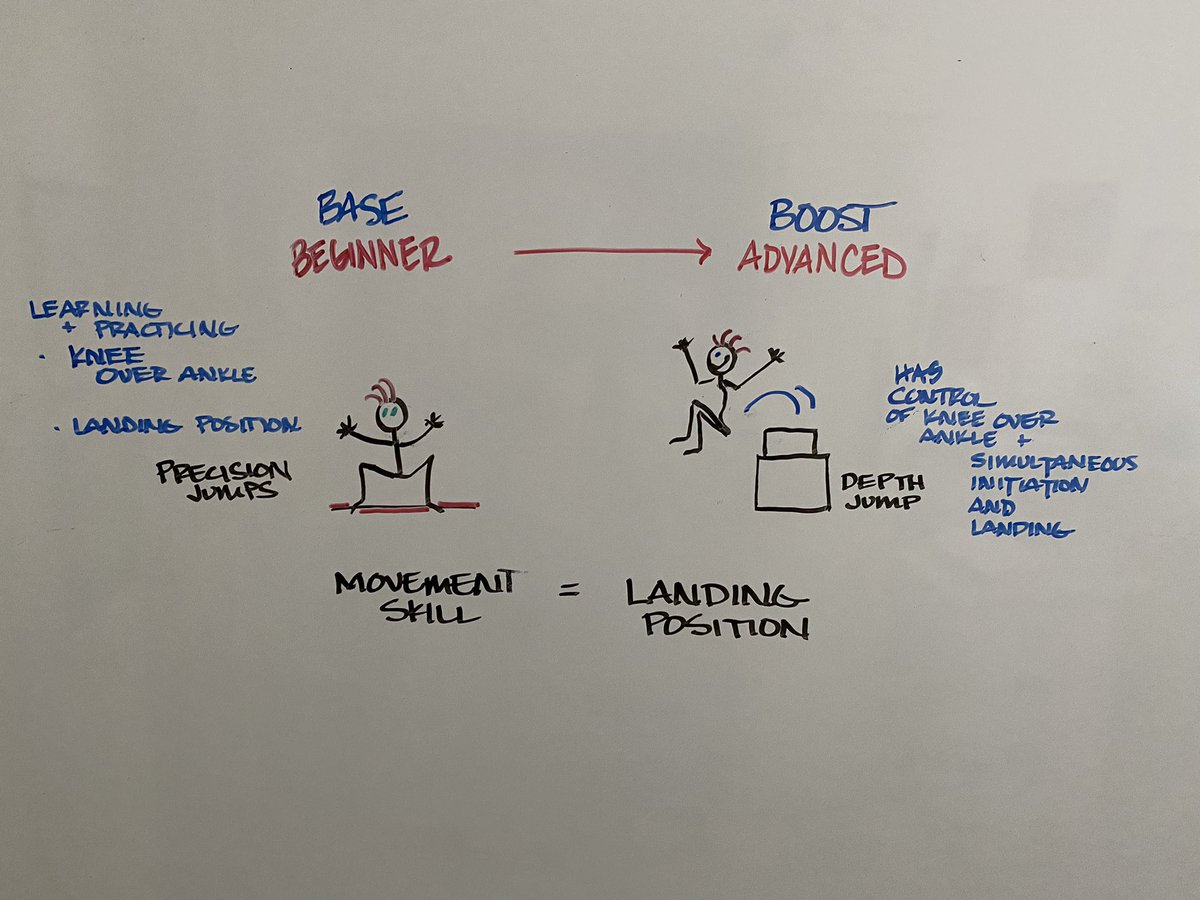 BASE
BEGINNER
BOOST
ADVANCED
LEARNING
+ PRACTICING
· KNEE
OVER ANKLE
· LANDING POSITION
PRECISION
JUMPS
HAS
CONTROL
OF KNEE OVER
ANKLE +
SIMULTANEOUS
INITIATION
AND
LANDING
DEPTH
JUMP
MOVEMENT
SKILL
=
LANDING
POSITION